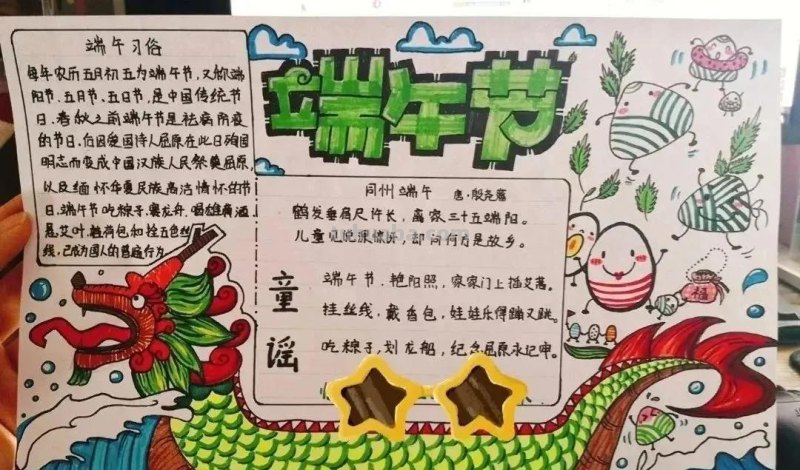 端午习俗
每年农历五月初五为端午节,又称端
阳节、五月节、五日节,是中国传统节
日、春秋之前端午节是祛病防疫
的节日,后因爱国诗人屈原在此日殉国
明志而变成中国汉族人民祭奠屈原,
以及缅怀华夏民族高洁情怀的节
日,端午节吃粽子,赛龙舟,喝雄黄酒
悬艾叶,挂荷包和拴五色丝
线,已成为国人的
端午节
同州端午 唐·殷尧藩
鹤发垂肩尺许长,离家三十五端阳。
儿童见说深惊讶,却问何方是故乡。
童谣
端午节,艳阳照,家家门上插艾蒿。
挂丝线,戴香包,娃娃乐得蹦又跳。
吃粽子,划龙船,纪念屈原永记牢。